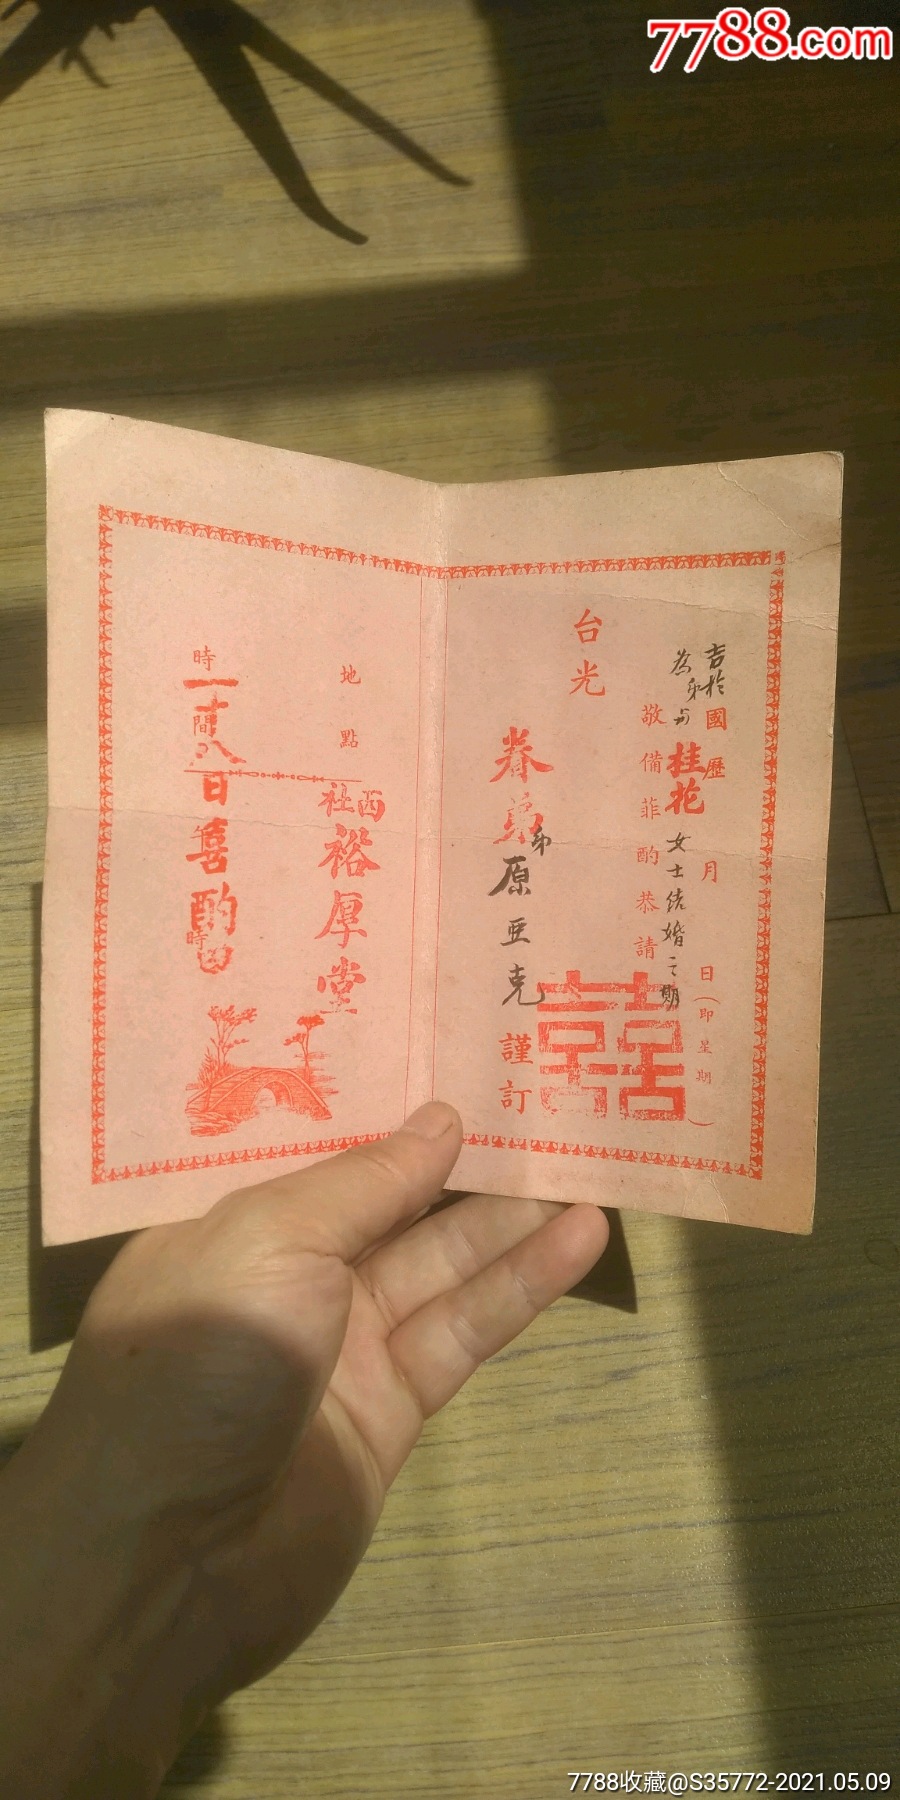 7788.com
吉於國歷 月 日(即星期 )
為弟与桂花女士结婚之期
敬備菲酌恭請
台光
眷弟原亚克謹訂
地點
西社裕厚堂
時間 時
一十八日喜酌
7788收藏@S35772-2021.05.09